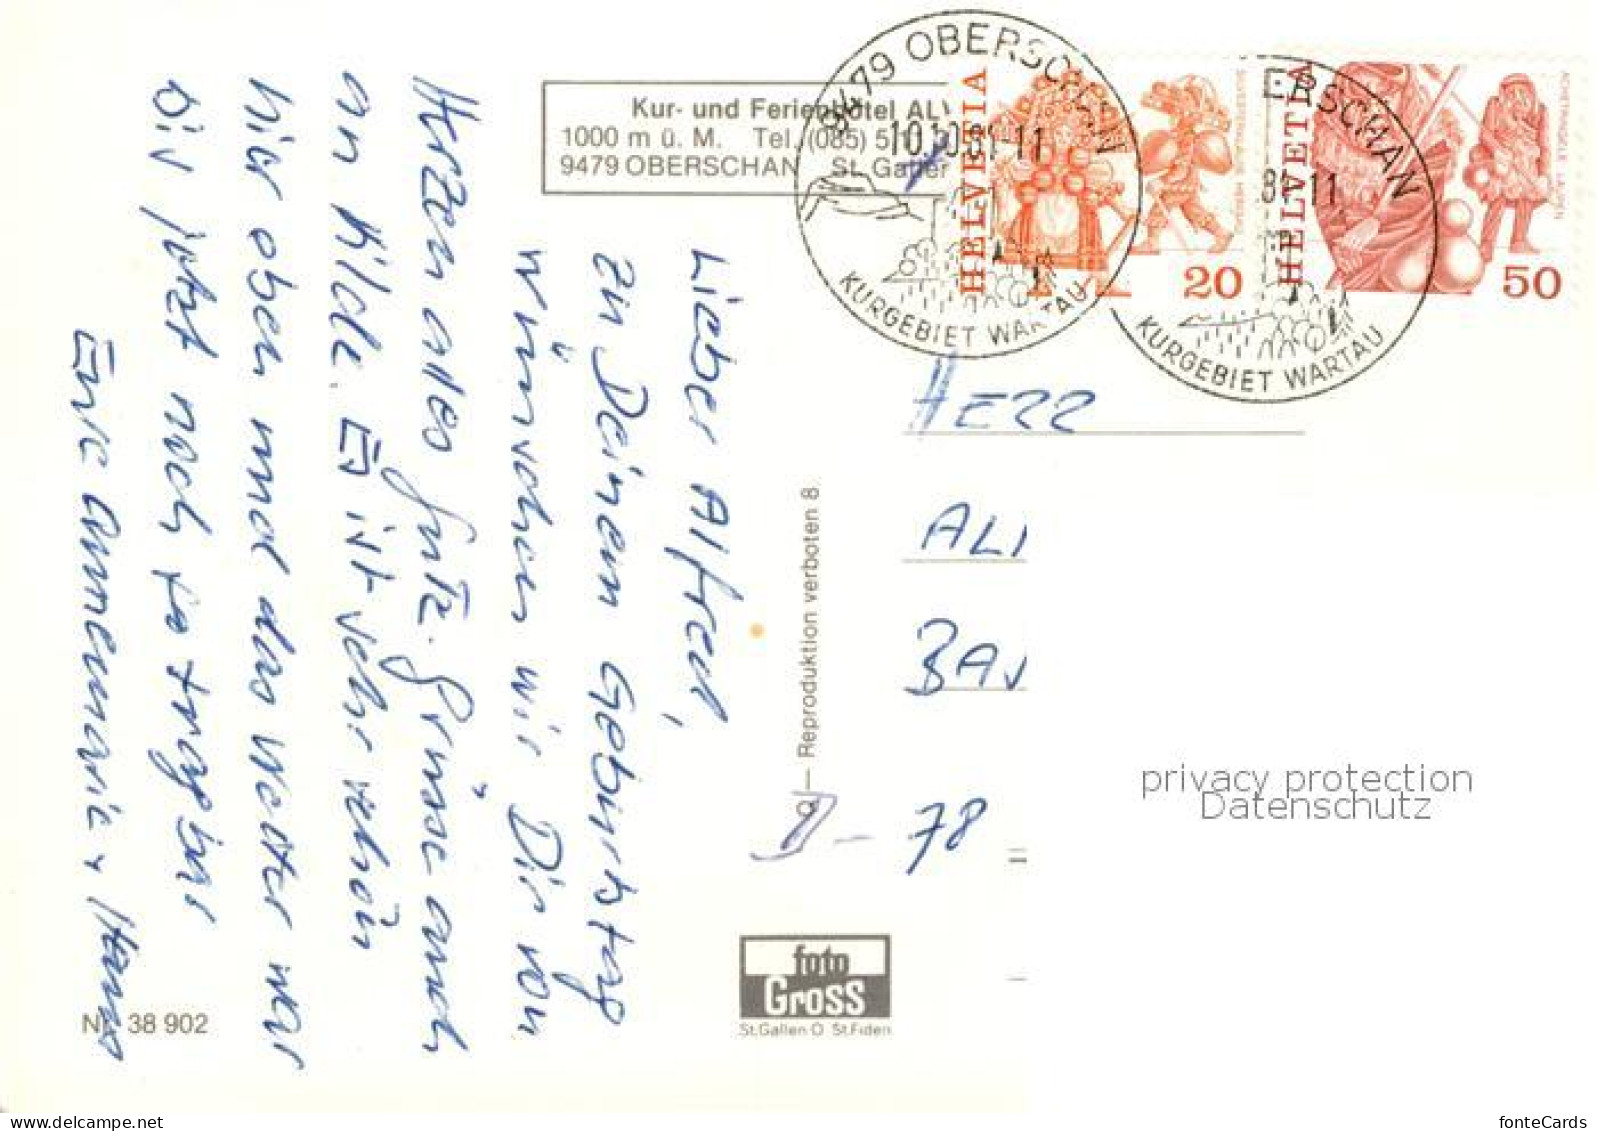 Kur- und Ferienhotel
1000 m ü. M. Tel. (085) 5
9479 OBERSCHAN St. Gallen
9479 OBERSCHAN
10.10.81-11
KURGEBIET WARTAU
HELVETIA
20
ERSCHAN
81-11
KURGEBIET WARTAU
HELVETIA
50
Lieber Alfred,
zu Deinem Geburtstag
wünschen wir Dir von
Herzen alles Gute. Grüsse auch
an Hilde. Es ist sehr schön
hier oben und das Wetter war
bis jetzt noch
Annemarie + Hans
HERR
AL
BA
D- 78
Reproduktion verboten 8
foto
Gross
St.Gallen O St.Fiden
Nr. 38 902
privacy protection
Datenschutz
fonteCards
www.delcampe.net